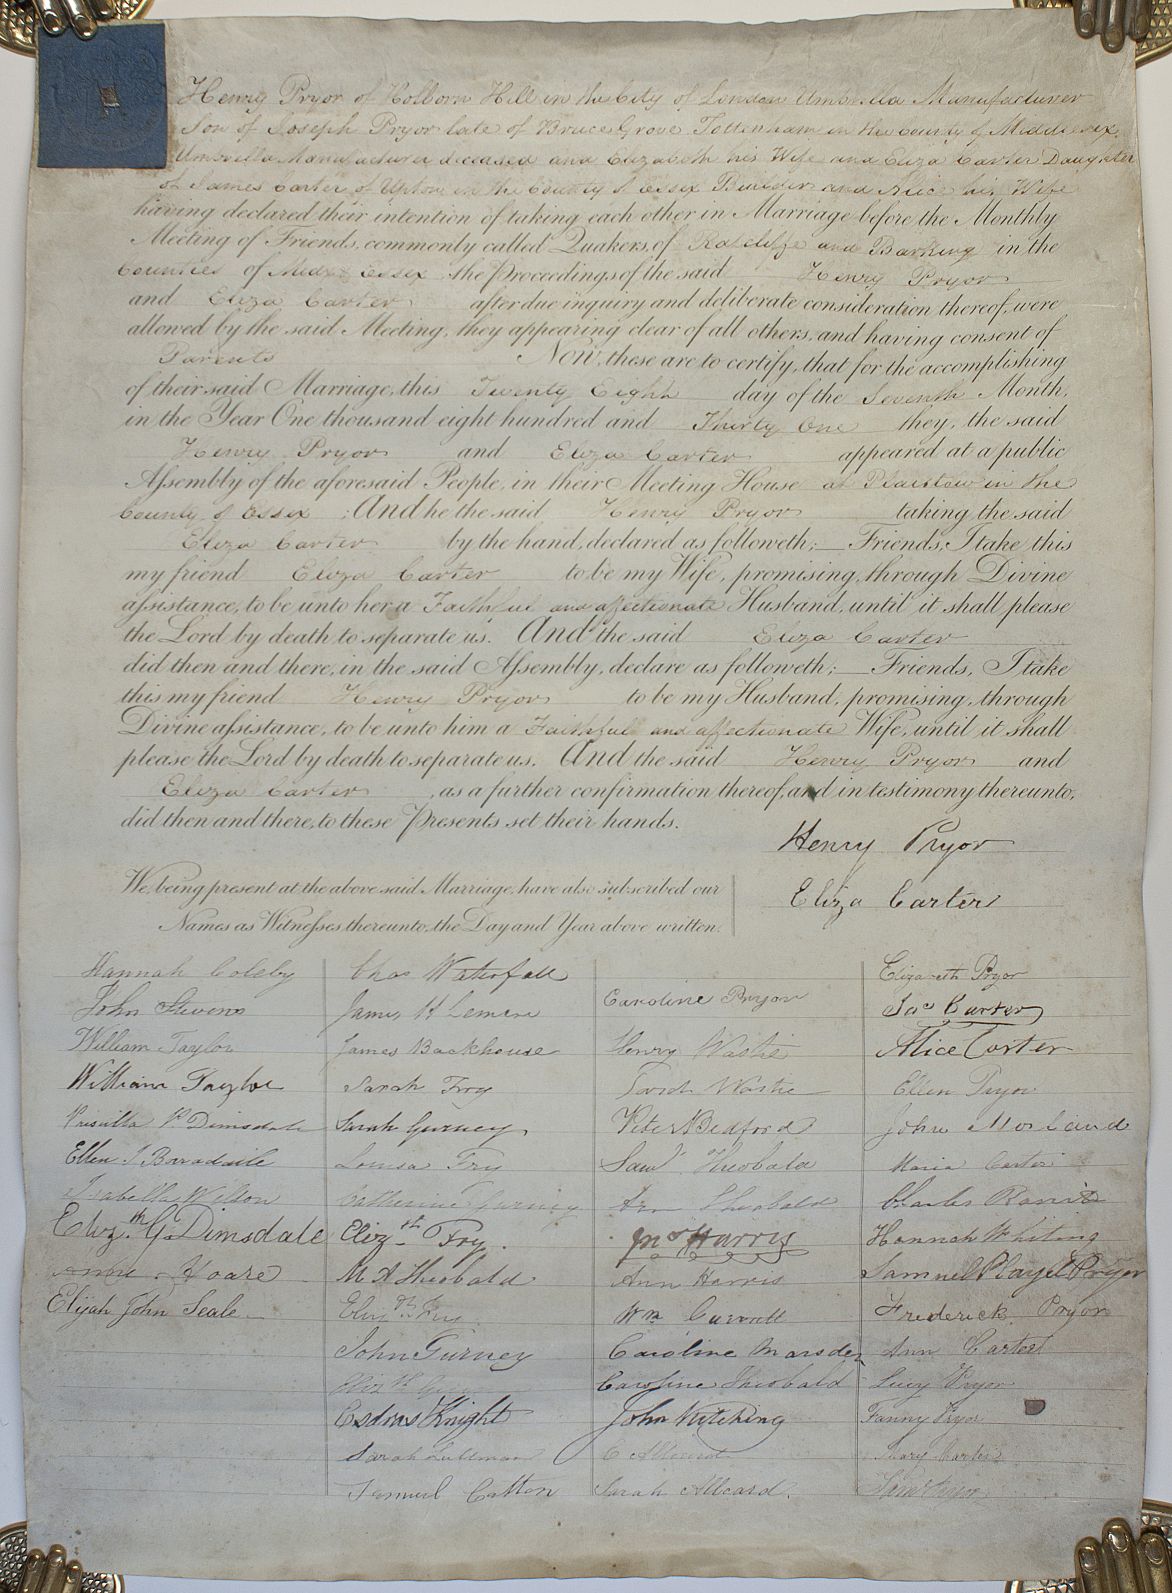 Henry Pryor of Holborn Hill in the City of London Umbrella Manufacturer
Son of Joseph Pryor late of Bruce Grove Tottenham in the County of Middlesex
Umbrella Manufacturer deceased and Elizabeth his Wife and Eliza Carter Daughter
of James Carter of Upton in the County of Essex and Alice his Wife
having declared their intention of taking each other in Marriage before the Monthly
Meeting of Friends, commonly called Quakers, of Ratcliffe and Barking in the
Counties of Midx & Essex the Proceedings of the said Henry Pryor
and Eliza Carter after due inquiry and deliberate consideration thereof, were
allowed by the said Meeting, they appearing clear of all others, and having consent of
Parents Now, these are to certify, that for the accomplishing
of their said Marriage, this Twenty Eighth day of the Seventh Month,
in the Year One thousand eight hundred and Thirty One they, the said
Henry Pryor and Eliza Carter appeared at a public
Assembly of the aforesaid People, in their Meeting House at Plaistow in the
County of Essex ; And he the said Henry Pryor taking the said
Eliza Carter by the hand, declared as followeth; Friends, I take this
my friend Eliza Carter to be my Wife, promising, through Divine
assistance, to be unto her a Faithful and affectionate Husband, until it shall please
the Lord by death to separate us. And the said Eliza Carter
did then and there, in the said Assembly, declare as followeth; Friends, I take
this my friend Henry Pryor to be my Husband, promising, through
Divine assistance, to be unto him a Faithful and affectionate Wife, until it shall
please the Lord by death to separate us. And the said Henry Pryor and
Eliza Carter , as a further confirmation thereof, and in testimony thereunto,
did then and there, to these Presents set their hands.
Henry Pryor
Eliza Carter
We, being present at the above said Marriage, have also subscribed our
Names as Witnesses thereunto, the Day and Year above written.
Hannah Coleby
John Stevens
William Taylor
William Taylor
Priscilla Dimsdale
Ellen J Baradaile
Isabella Wilson
Elizth G Dimsdale
Anna Hoare
Elijah John Seale
Chas Waterfall
James H Lemere
James Backhouse
Sarah Fry
Sarah Gurney
Louisa Fry
Catherine Gurney
Elizth Fry
M A Theobald
Elizth Fry
John Gurney
Esdras Knight
Sarah
Samuel Catton
Caroline Pryor
Henry Wastie
Sarah Wastie
Peter Bedford
Saml Theobald
Ann Theobald
Jno Harris
Ann Harris
Wm
Caroline Marsden
Caroline Theobald
John Kitching
C Allcard
Sarah Allcard
Elizabeth Pryor
Jas Carter
Alice Carter
Ellen Pryor
John Morland
Maria Carter
Charles
Hannah Whiting
Samuel Playel Pryor
Frederick Pryor
Ann Carter
Lucy Pryor
Fanny Pryor
Mary Carter